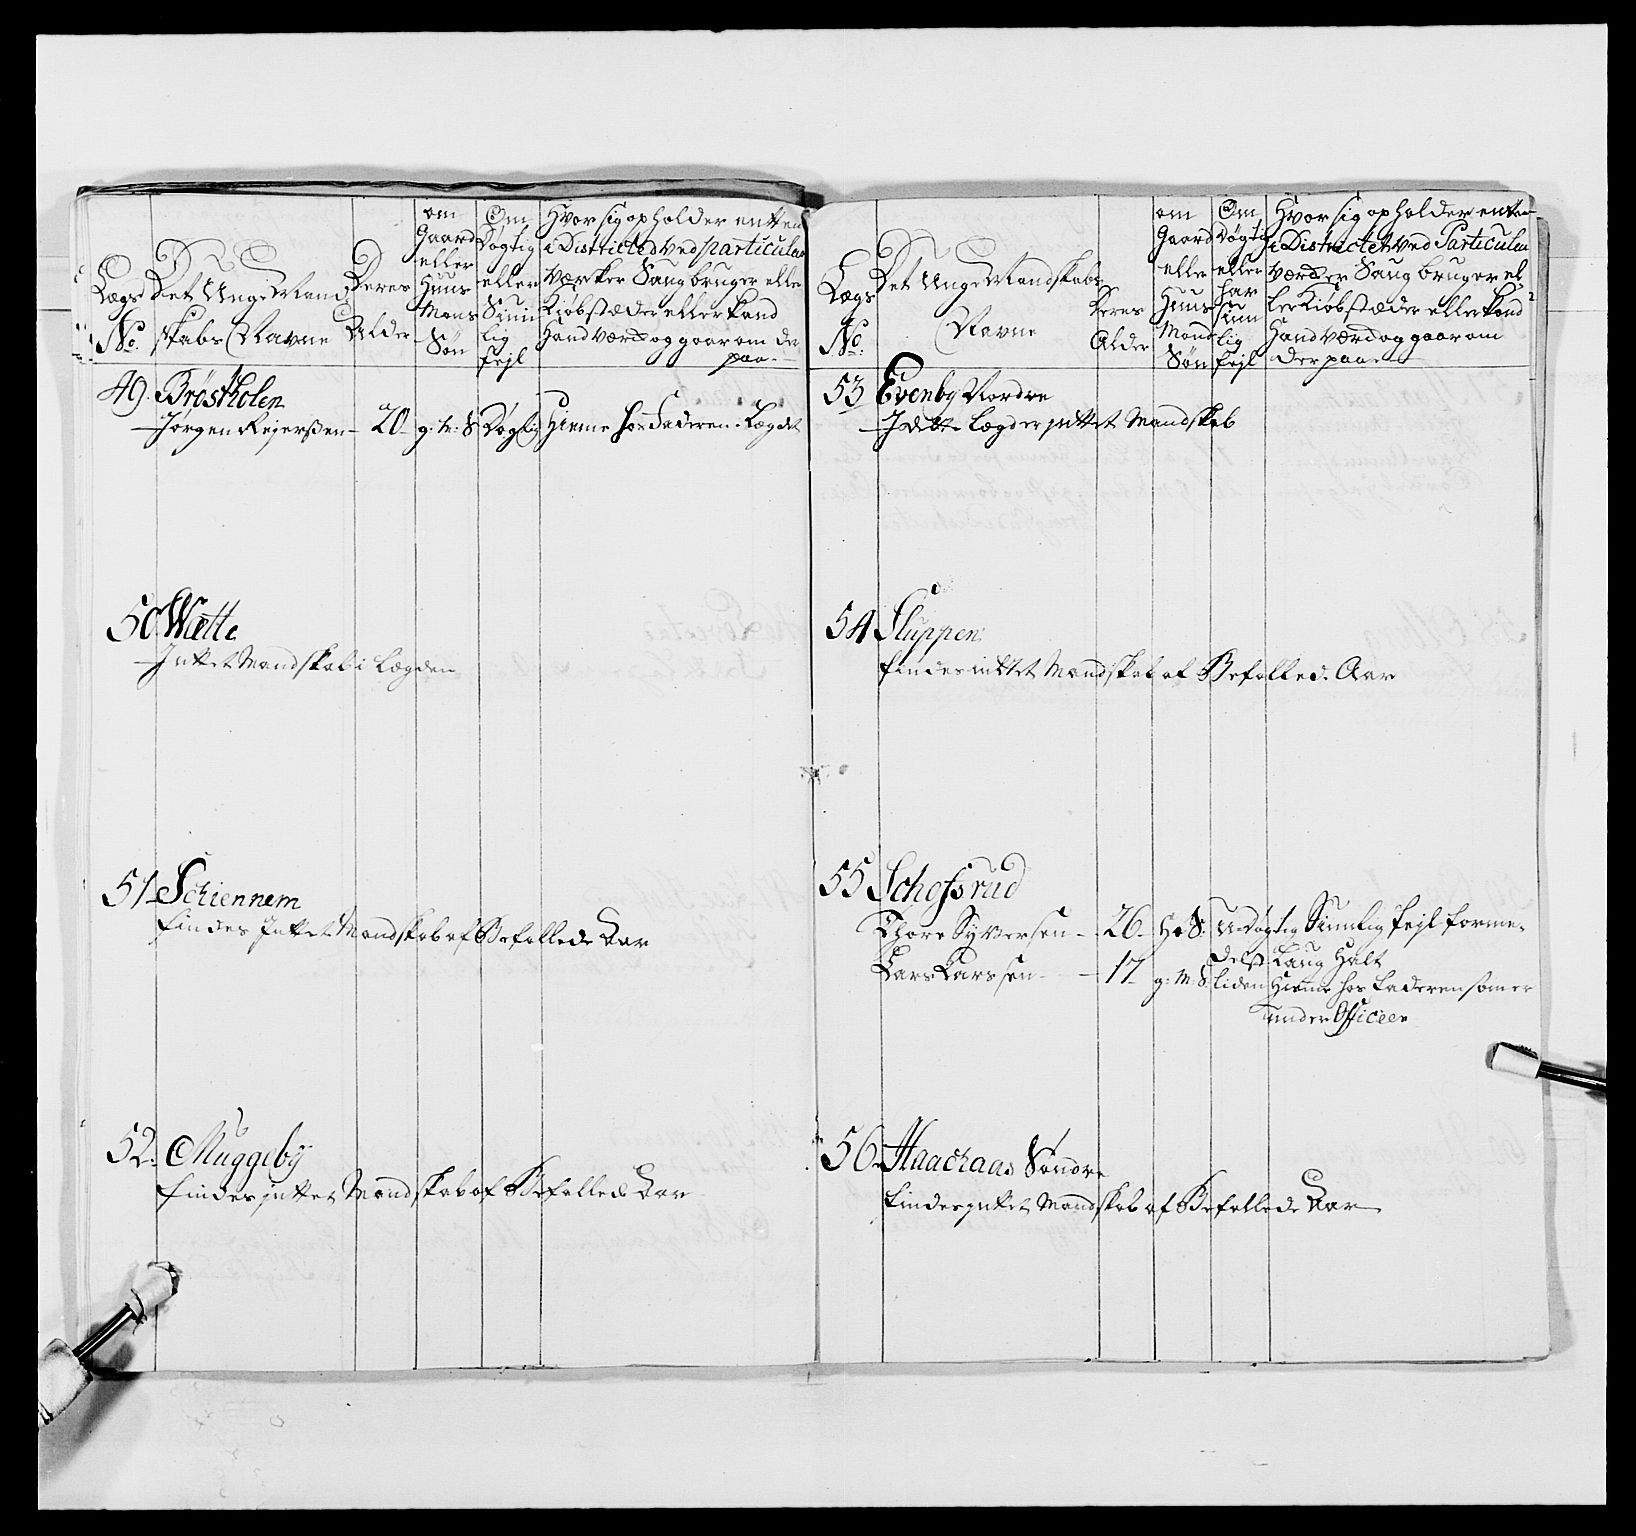 Lægs No:
Det Unge Mand skabs Navne
Deres Alder
om Gaard eller Huus Mans Søn
Om Døgtig eller Siun lig fejl
Hvor sig opholder entten
i Districted ved particulær
Værcker Saugbruger eller
Kiobstæder eller kand
Handværck og gaar om der
paa
49. Brøstholen
Jørgen Rejersßen 20 g: M: S Døgtig Hieme hos Faderen i Lægdet
50 Wætte
Inttet Mandskab i Lægden
51 Schiennem
findes Inttet Mandskab af Befallede Aar
52. Muggeby
findes inttet Mandskab af Befallede Aar
Lægs No:
Det Unge Mandskabs Navne
Deres Alder
om Gaard eller Huus Mand Søn
Om Døgtig eller har siun lig fejl
Hvor sig opholder entten
i Districtet ved Particulær
Værcker Saugbruger el
ler Kiobstæder eller kand
Handværck og gaar om
der paa
53 Evenby Nordre
I dette Lægd er inttet Mandskab
54 Sluppen
findes inttet Mandskab af Befallede Aar
55 Schofsrud
Thore Syversen 26 H: S: U-døgtig Siunlig fejl forme-
delst Laug Halt
Lars Larssen 17 g: M: S: liden Hieme hos faderen som er
under Officeer
56 Haachaas Søndre
findes inttet Mandskab af Befallede Aar